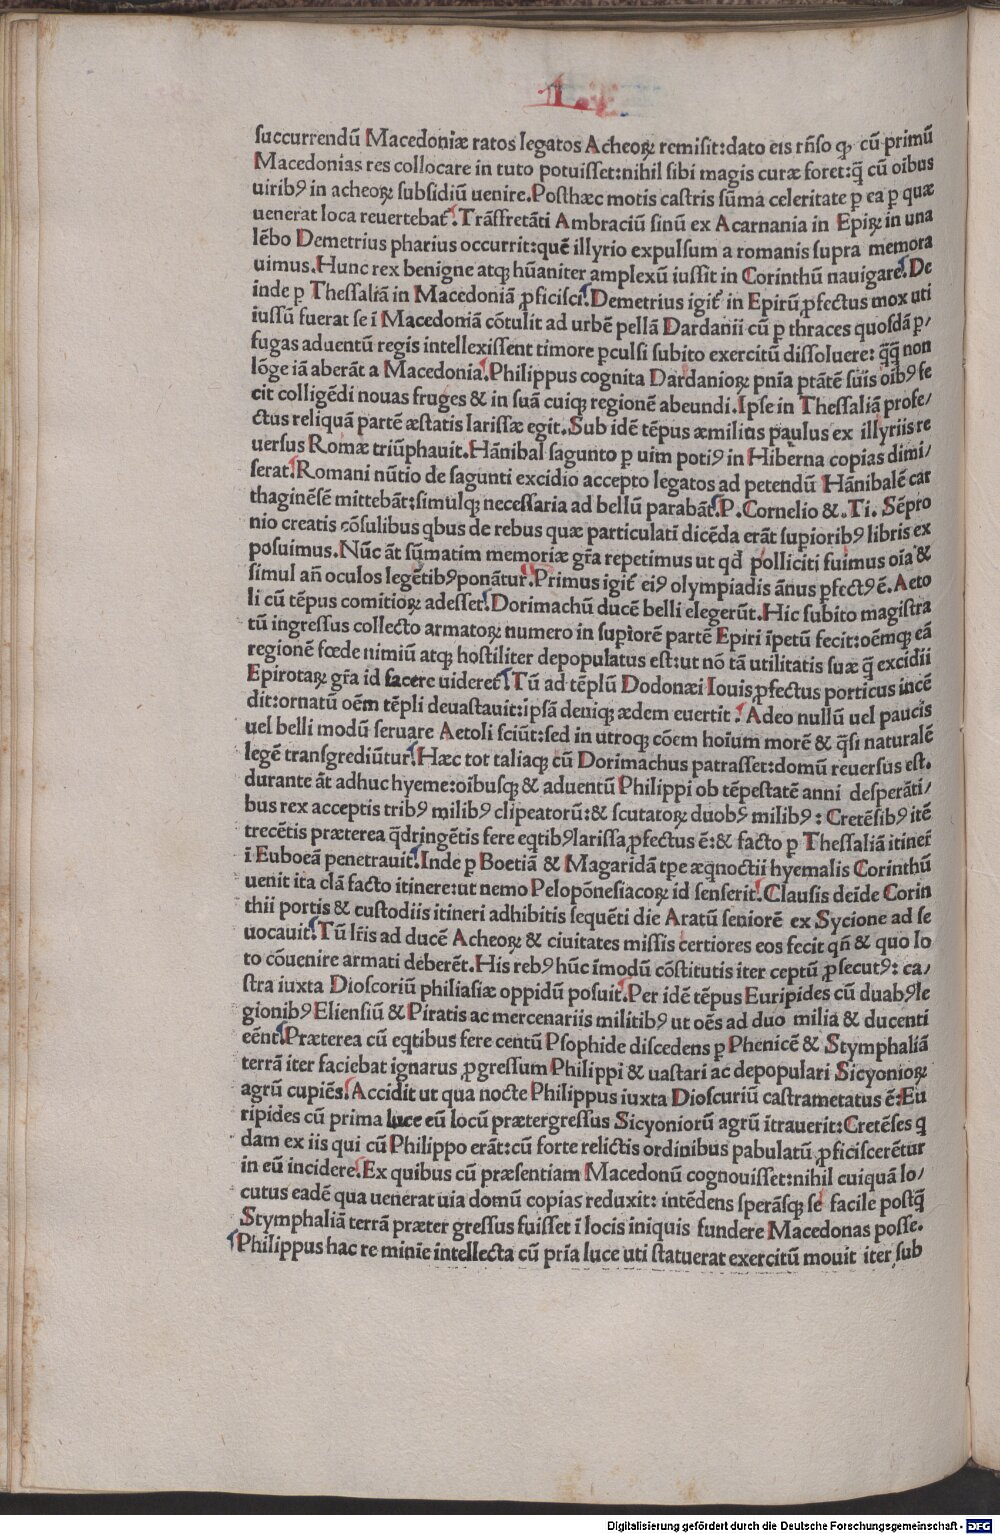 L
succurrendū Macedoniæ ratos legatos Acheoꝝ remisit:dato eis rñso ꝙ cū primū
Macedonias res collocare in tuto potuisset:nihil sibi magis curæ foret:q̄ cū oibus
uiribꝰ in acheoꝝ subsidiū uenire.Posthæc motis castris sūma celeritate ꝑ ea ꝑ quæ
uenerat loca reuertebat̄.Trāsfretāti Ambraciū sinū ex Acarnania in Epiꝝ in una
lēbo Demetrius pharius occurrit:quē illyrio expulsum a romanis supra memora
uimus.Hunc rex benigne atqꝫ hūaniter amplexū iussit in Corinthū nauigare.De
inde ꝑ Thessaliā in Macedoniā ꝓficisci.Demetrius igit̄ in Epirū ꝓfectus mox uti
iussū fuerat se ī Macedoniā cōtulit ad urbē pellā Dardanii cū ꝑ thraces quosdā ꝑ/
fugas aduentū regis intellexissent timore ꝑculsi subito exercitū dissoluere: q̄q̄ non
lōge iā aberāt a Macedonia.Philippus cognita Dardanioꝝ pnīa ptātē suis oībꝰ fe
cit colligēdi nouas fruges & in suā cuiqꝫ regionē abeundi.Ipse in Thessaliā profe/
ctus reliquā partē æstatis larissæ egit.Sub idē tēpus æmilius paulus ex illyriis re
uersus Romæ triūphauit.Hānibal sagunto ꝑ uim potiꝰ in Hiberna copias dimi/
serat.Romani nūtio de sagunti excidio accepto legatos ad petendū Hānibalē car
thaginēsē mittebāt:simulqꝫ necessaria ad bellū parabāt.P.Cornelio &.Ti. Sēpro
nio creatis cōsulibus qbus de rebus quæ particulatī dicēda erāt supioribꝰ libris ex
posuimus.Nūc āt sūmatim memoriæ gr̄a repetimus ut qd̄ polliciti fuimus oīa &
simul añ oculos legētibꝰponāt̄ur.Primus igit̄ eiꝰ olympiadis ānus pfectꝰ ē.Aeto
li cū tēpus comitioꝝ adesset.Dorimachū ducē belli elegerūt.Hic subito magistra
tū ingressus collecto armatoꝝ numero in supīorē partē Epiri īpetū fecit:oēmqꝫ eā
regionē fœde nimiū atqꝫ hostiliter depopulatus est:ut nō tā utilitatis suæ q̄ excidii
Epirotaꝝ gr̄a id facere uideret̄.Tū ad tēplū Dodonæi Iouis ꝓfectus porticus incē
dit:ornatū oēm tēpli deuastauit:ipsā deniqꝫ ædem euertit.Adeo nullū uel paucis
uel belli modū seruare Aetoli sciūt:sed in utroqꝫ cōem hoīum morē & q̄si naturalē
legē transgrediūtur.Hæc tot taliaqꝫ cū Dorimachus patrasset:domū reuersus est.
durante āt adhuc hyeme:oibusqꝫ & aduentū Philippi ob tēpestatē anni desperāti/
bus rex acceptis tribꝰ milibꝰ clipeatorū:& scutatoꝝ duobꝰ milibꝰ: Cretēsibꝰ itē
trecētis præterea q̄dringētis fere eqtibꝰlarissa ꝓfectus ē:& facto ꝑ Thessaliā itiner̄
ī Euboeā penetrauit.Inde ꝑ Boetiā & Magaridā tpe æqnoctii hyemalis Corinthū
uenit ita clā facto itinere:ut nemo Pelopōnesiacoꝝ id senserit.Clausis deīde Corin
thii portis & custodiis itineri adhibitis sequēti die Aratū seniorē ex Sycione ad se
uocauit.Tū lr̄is ad ducē Acheoꝝ & ciuitates missis certiores eos fecit qñ & quo lo
to cōuenire armati deberēt.His rebꝰ hūc īmodū cōstitutis iter ceptū ꝓsecutꝰ: ca/
stra iuxta Dioscoriū philiasiæ oppidū posuit.Per idē tēpus Euripides cū duabꝰle
gionibꝰ Eliensiū & Piratis ac mercenariis militibꝰ ut oēs ad duo milia & ducenti
eēnt.Præterea cū eqtibus fere centū Psophide discedens ꝑ Phenicē & Stymphaliā
terrā iter faciebat ignarus ꝓgressum Philippi & uastari ac depopulari Sicyonioꝝ
agrū cupiēs.Accidit ut qua nocte Philippus iuxta Dioscuriū castrametatus ē:Eu
ripides cū prima luce eū locū prætergressus Sicyoniorū agrū ītrauerit:Cretēses q
dam ex iis qui cū Philippo erāt:cū forte relictis ordinibus pabulatū ꝓficiscerētur
in eū incidere.Ex quibus cū præsentiam Macedonū cognouisset:nihil cuiquā lo/
cutus eadē qua uenerat uia domū copias reduxit: intēdens sperāsqꝫ se facile postq̄
Stymphaliā terrā præter gressus fuisset ī locis iniquis fundere Macedonas posse.
Philippus hac re minīe intellecta cū pria luce uti statuerat exercitū mouit iter sub
Digitalisierung gefördert durch die Deutsche Forschungsgemeinschaft - DFG